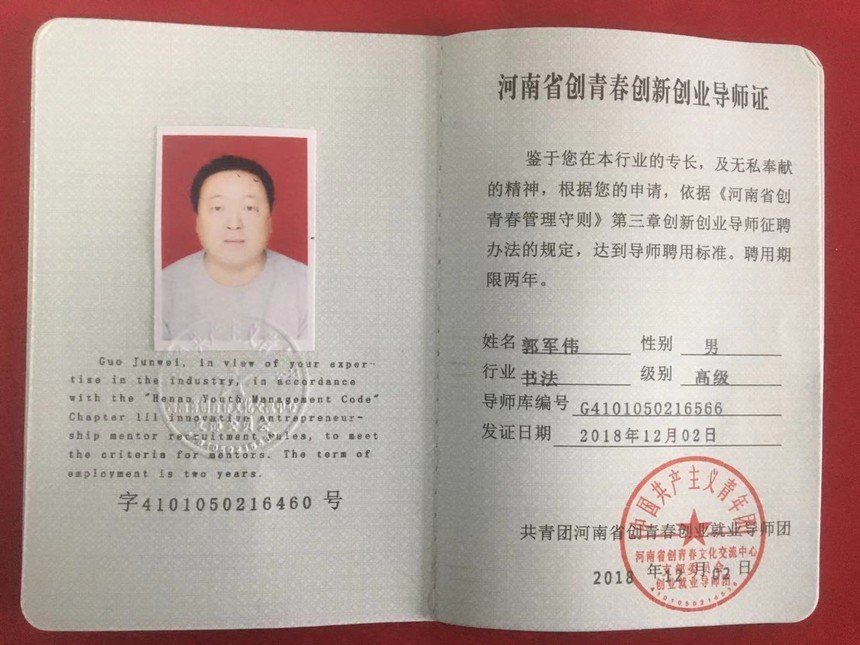 Guo Junwei, in view of your exper-
tise in the industry, in accordance
with the "Henan Youth Management Code"
Chapter lil innovative antrepreneur-
ship mentor recruitment rules, to meet
the criteria for mentors. The term of
employment is two years.
字4101050216460 号
河南省创青春创新创业导师证
鉴于您在本行业的专长，及无私奉献
的精神，根据您的申请，依据《河南省创
青春管理守则》第三章创新创业导师征聘
办法的规定，达到导师聘用标准。聘用期
限两年。
姓名 郭军伟 性别 男
行业 书法 级别 高级
导师库编号 G4101050216566
发证日期 2018年12月02日
共青团河南省创青春创业就业导师团
2018 年12月02日
中国共产主义青年团
河南省创青春文化交流中心
支部委员会
创业就业导师团